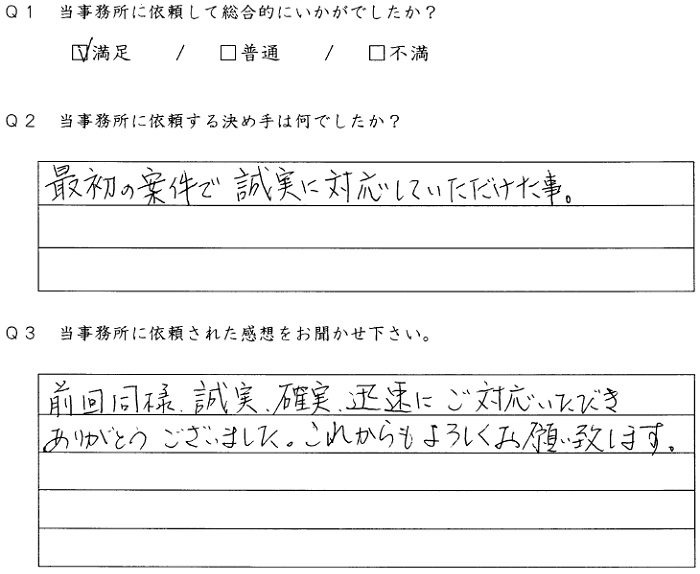 Q1 当事務所に依頼して総合的にいかがでしたか？
☑満足 / □普通 / □不満
Q2 当事務所に依頼する決め手は何でしたか？
最初の案件で誠実に対応していただけた事。
Q3 当事務所に依頼された感想をお聞かせ下さい。
前回同様、誠実、確実、迅速にご対応いただき
ありがとうございました。これからもよろしくお願い致します。